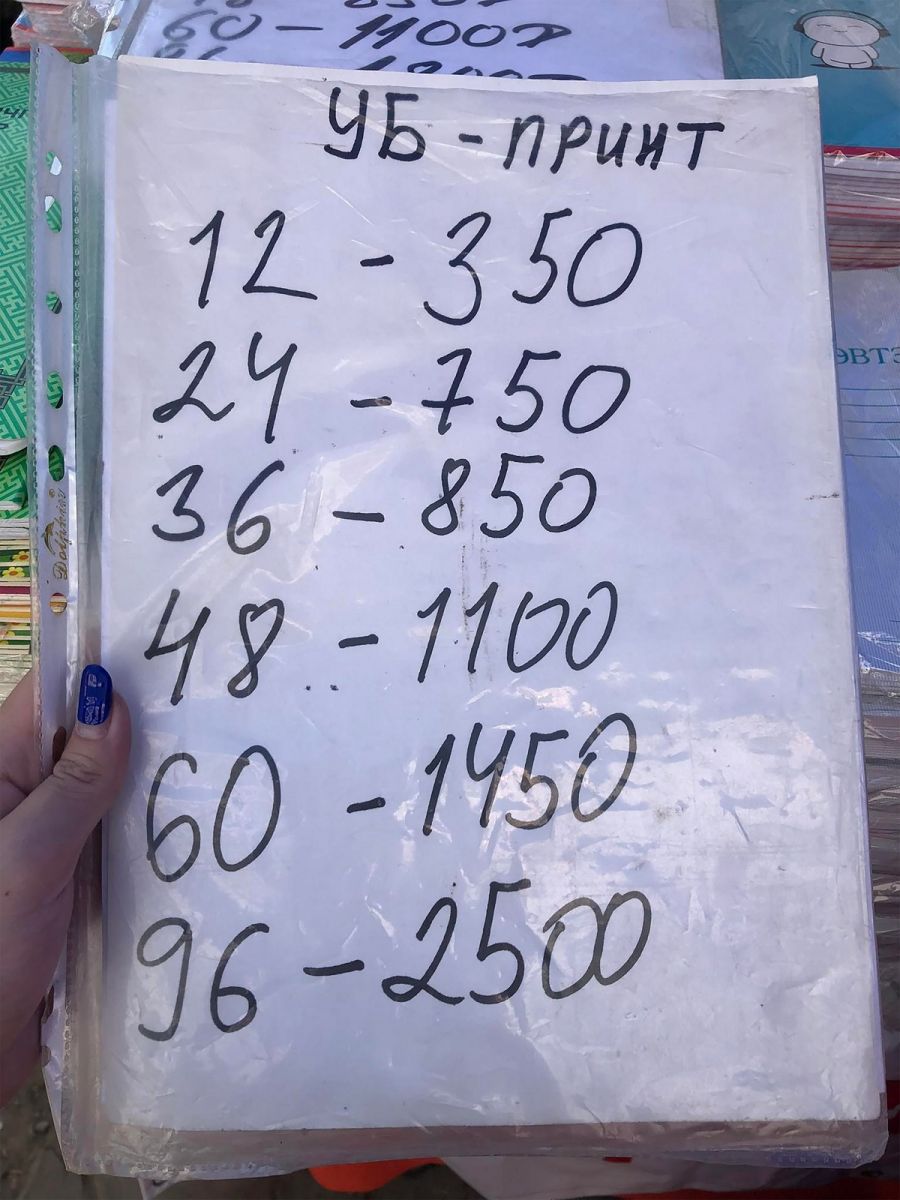 60 - 1100₮
УБ - ПРИНТ
12 - 350
24 - 750
36 - 850
48 - 1100
60 - 1450
96 - 2500
Dolphin